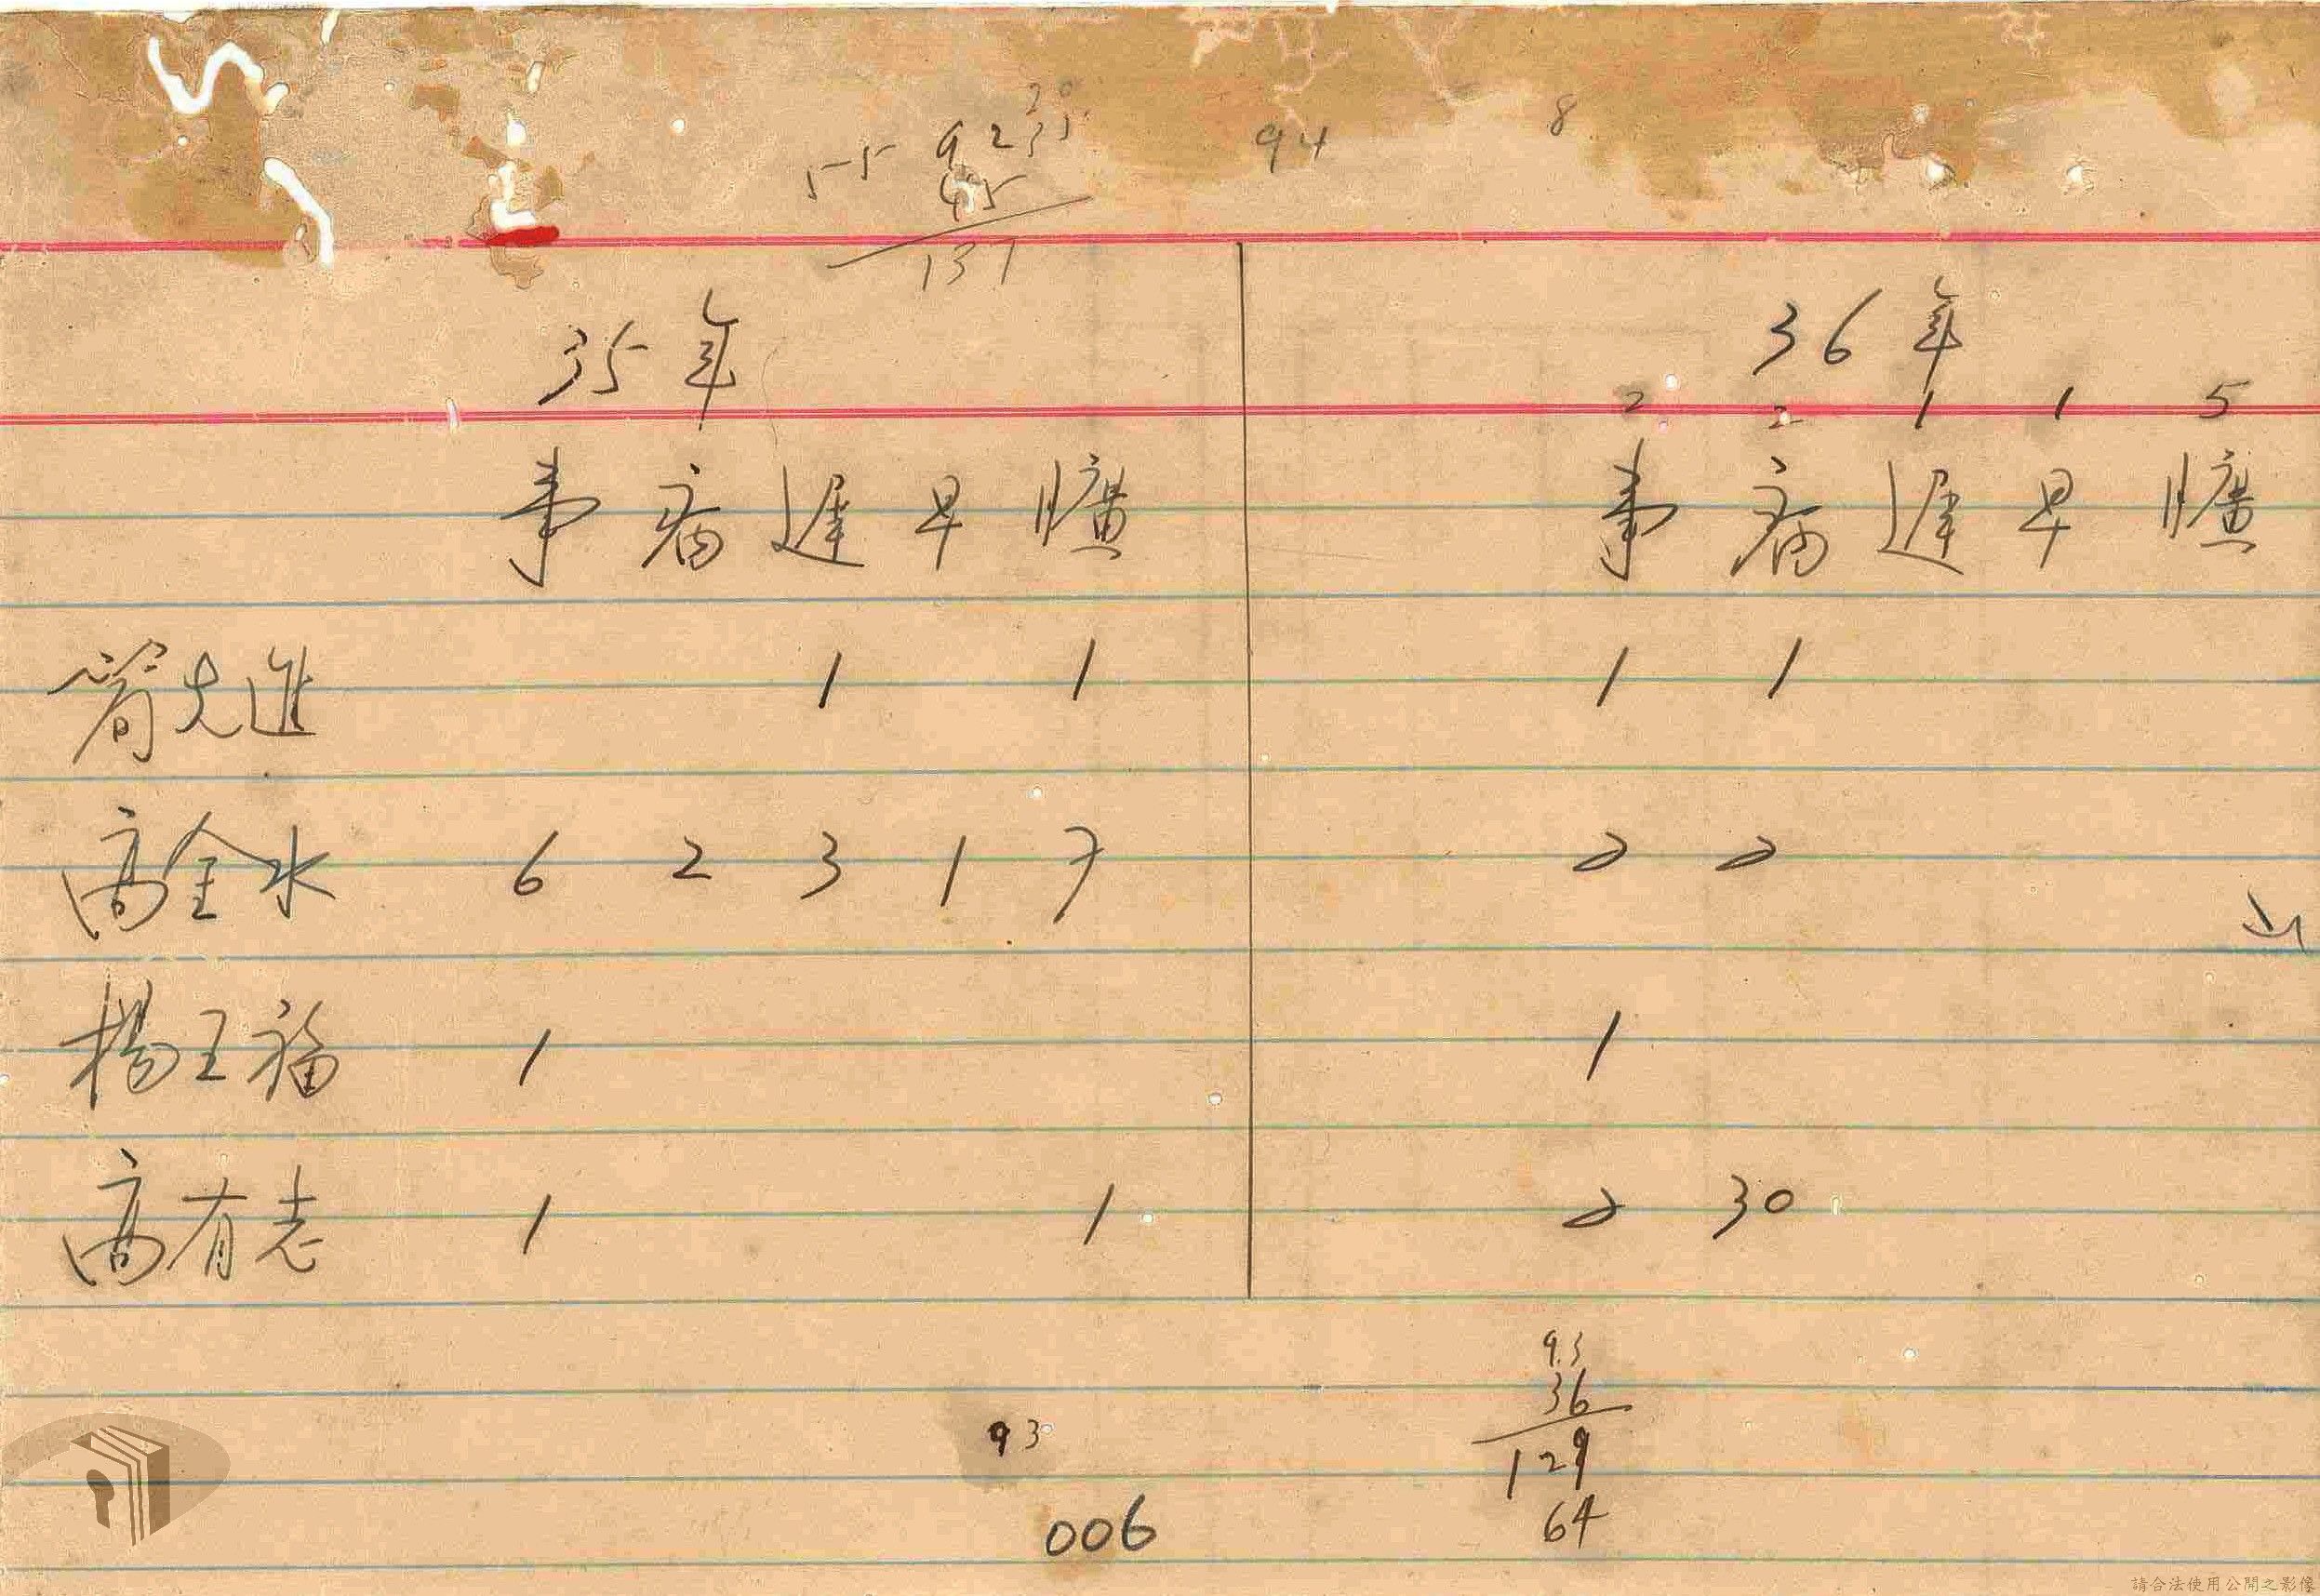 30
55 92 35 94 8
45
137
35年 36年
2 2 1 1 5
事 病 遲 早 曠 事 病 遲 早 曠
簡先進 1 1 1 1
高金水 6 2 3 1 7 2 2
楊玉福 1 1
高有志 1 1 2 30
93
36
93 129
006 64
請合法使用公開之影像